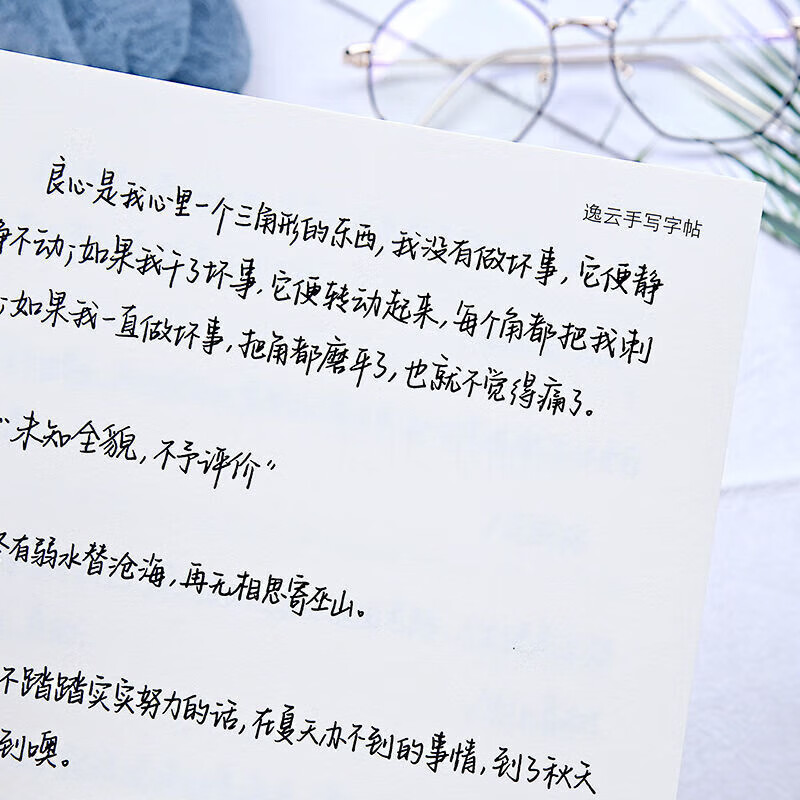 逸云手写字帖
良心是我心里一个三角形的东西，我没有做坏事，它便静
静不动；如果我干了坏事，它便转动起来，每个角都把我刺
；如果我一直做坏事，把角都磨平了，也就不觉得痛了。
“未知全貌，不予评价”
终有弱水替沧海，再无相思寄巫山。
不踏踏实实努力的话，在夏天办不到的事情，到了秋天
到噢。